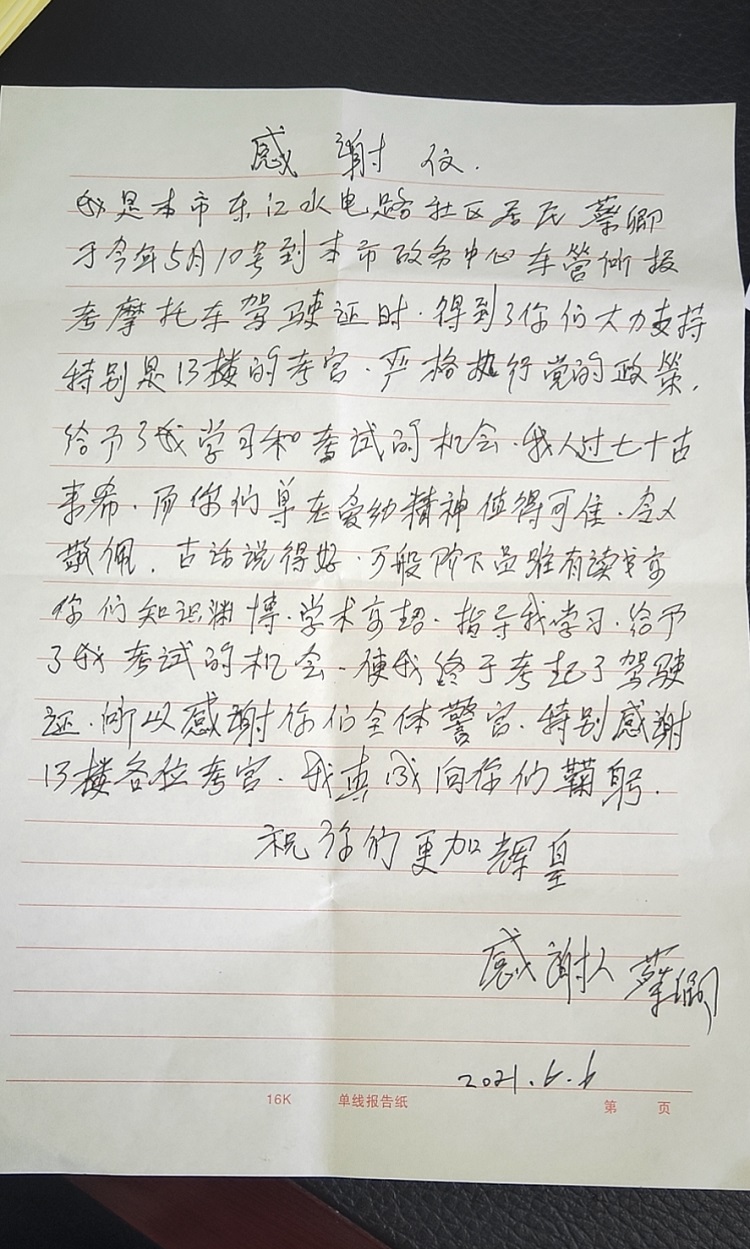 感谢仪.
我是本市东江水电路社区居民蔡卿
于今年5月10号到本市政务中心车管所报
考摩托车驾驶证时.得到了你们大力支持
特别是13楼的考官.严格执行党的政策.
给予了我学习和考试的机会.我人过七十古
来希.而你们尊老爱幼精神值得可佳.令人
敬佩.古话说得好.万般阶下品唯有读书高
你们知识渊博.学术高超.指导我学习.给予
了我考试的机会.使我终于考起了驾驶
证.所以感谢你们全体警官.特别感谢
13楼各位考官.我真诚向你们鞠躬.
祝你们更加辉皇
感谢人 蔡卿
2021.6.6
16K 单线报告纸 第 页